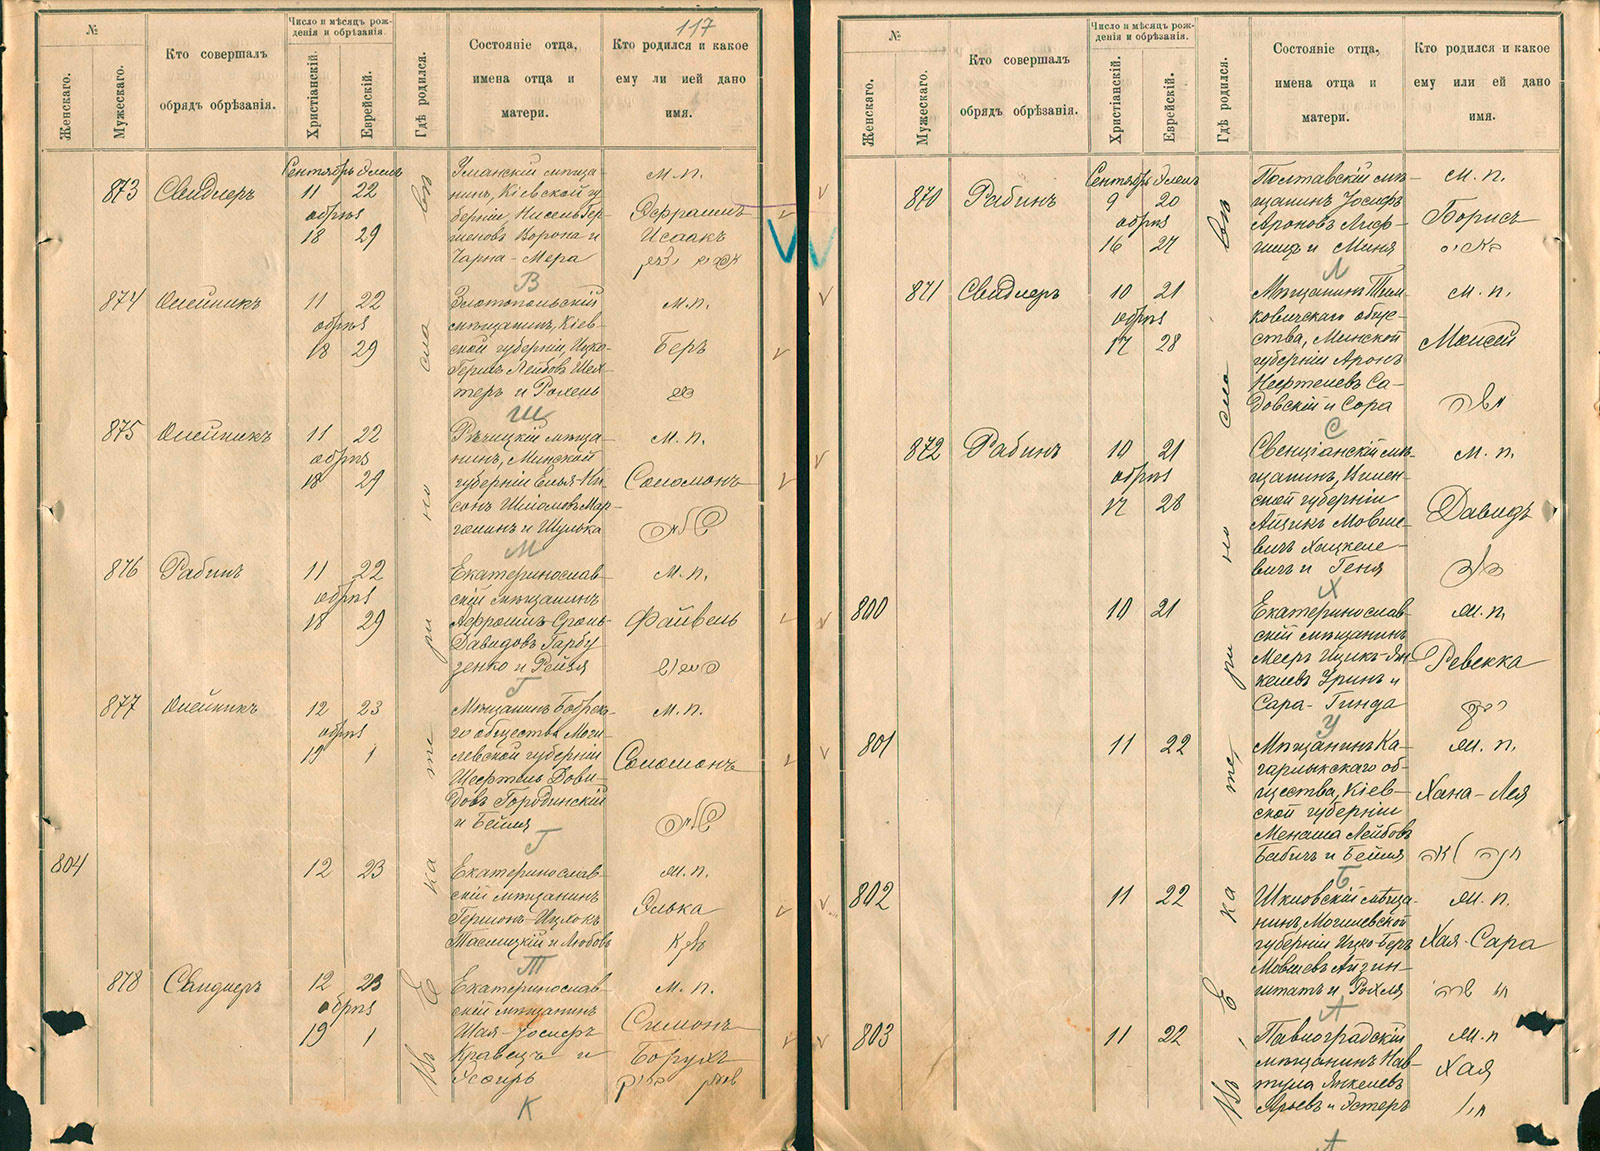 117
№
Женскаго.
Мужескаго.
Кто совершалъ
обрядъ обрѣзанія.
Число и мѣсяцъ рож-
денія и обрѣзанія.
Христіанскій.
Еврейскій.
Гдѣ родился.
Состояніе отца,
имена отца и
матери.
Кто родился и какое
ему ли ией дано
имя.
Въ Екатеринославѣ
873
Свидлеръ
Сентябрь Элелъ
11 22
обрѣз
18 29
Уманскій мѣща-
нинъ, Кіевской гу
берніи, Нисель Гер-
шеновъ Ворона и
Чарна-Мера
м.п.
Эфраимъ
Исаакъ
אפרים יצחק
В
874
Олейникъ
11 22
обрѣз
18 29
Златопольскій
мѣщанинъ, Кіев-
ской губерніи Ицко-
Гершъ Лейбовъ Шех-
теръ и Рохель
м.п.
Беръ
בער
Ш
875
Олейникъ
11 22
обрѣз
18 29
Рѣчицкій мѣща-
нинъ, Минской
губерніи Елья-Ни-
сонъ Шліомовъ Мар-
голинъ и Шулька
м.п.
Соломонъ
שלמה
М
876
Рабинъ
11 22
обрѣз
18 29
Екатеринослав-
скій мѣщанинъ
Афроимъ-Сроль
Давидовъ Гарбу
зенко и Рейзя
м.п.
Файвель
Г
877
Олейникъ
12 23
обрѣз
19 1
го общества Моги-
левской губерніи
Довидовъ Городинскій
и Бейля
м.п.
Соломонъ
שלמה
Г
804
12 23
Екатеринослав-
скій мѣщанинъ
Гершонъ-Ицхокъ
Таслицкій и Любовь
ж.п.
Элька
Т
878
Свидлеръ
12 23
обрѣз
19 1
Екатеринослав-
скій мѣщанинъ
Шая-Іосифъ
Кравецъ и
Эсфирь
м.п.
Симонъ
Борухъ
שמעון ברוך
К
№
Женскаго.
Мужескаго.
Кто совершалъ
обрядъ обрѣзанія.
Число и мѣсяцъ рож-
денія и обрѣзанія.
Христіанскій.
Еврейскій.
Гдѣ родился.
Состояніе отца,
имена отца и
матери.
Кто родился и какое
ему или ей дано
имя.
Въ Екатеринославѣ
870
Рабинъ
Сентябрь Элелъ
9 20
обрѣз
16 27
Полтавскій мѣ-
щанинъ Іосифъ
Ароновъ Лиф-
шицъ и Миня
м.п.
Борисъ
Л
871
Свидлеръ
10 21
обрѣз
17 28
Мѣщанинъ Тим-
ковичскаго обще-
ства, Минской
губерніи Аронъ
Са-
довскій и Сора
м.п.
Моисей
משה
С
872
Рабинъ
10 21
обрѣз
17 28
Свенціанскій мѣ-
щанинъ, Вилен-
ской губерніи
Айзикъ Мовше-
вичъ Хацкеле-
вичъ и Геня
м.п.
Давидъ
דוד
Х
800
10 21
Екатеринослав-
скій мѣщанинъ
Мееръ Ицикъ-Ян-
келевъ Уринъ и
Сара-Гинда
ж.п.
Ревекка
רבקה
У
801
11 22
Мѣщанинъ Ка-
гарлыкскаго об-
щества, Кіев-
ской губерніи
Менаша Лейбовъ
Бабичъ и Бейля
ж.п.
Хана-Лея
חנה לאה
Б
802
11 22
Шкловскій мѣща-
нинъ, Могилевской
губерніи Ицко-Беръ
Мовшевъ Айзин-
штатъ и Рохля
ж.п.
Хая-Сара
חי׳ שרה
А
803
11 22
Павлоградскій
мѣщанинъ Наф-
тула Янкелевъ
Арьевъ и Эстеръ
ж.п
Хая
חי׳
А